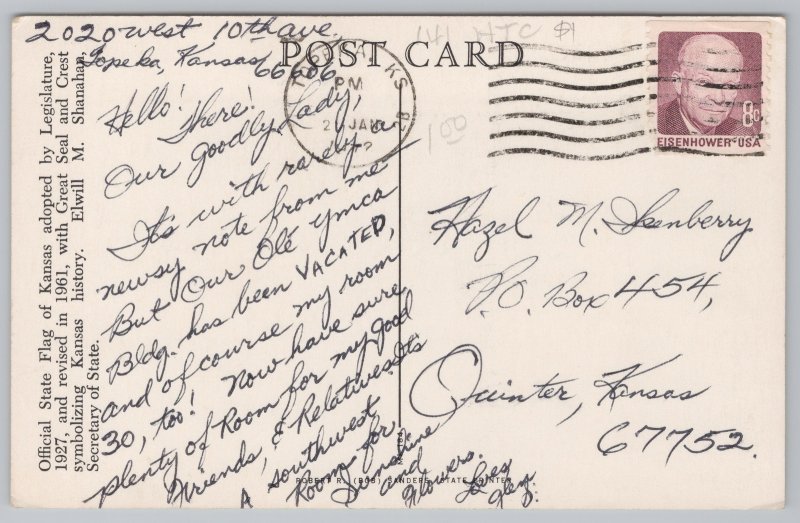 2020 west 10th ave.
Topeka, Kansas
66606
POST CARD
141 HTC $1
1.00
TOPEKA, KS
PM
JAN
8c
EISENHOWER·USA
Official State Flag of Kansas adopted by Legislature,
1927, and revised in 1961, with Great Seal and Crest
symbolizing Kansas history. Elwill M. Shanahan,
Secretary of State.
Hello! There!
Our goodly Lady,
It's with rarely a
newsy note from me
But Our Olé Ymca
Bldg. has been VACATED,
and of course my room
30, too! Now have sure
plenty of Room for my good
Friends, & Relatives. It's
A southwest
Room for
Sunshine
and
Flowers.
Hazel M.
P.O. Box 454,
Quinter, Kansas
67752.
ROBERT R. (BOB) SANDERS, STATE PRINTER